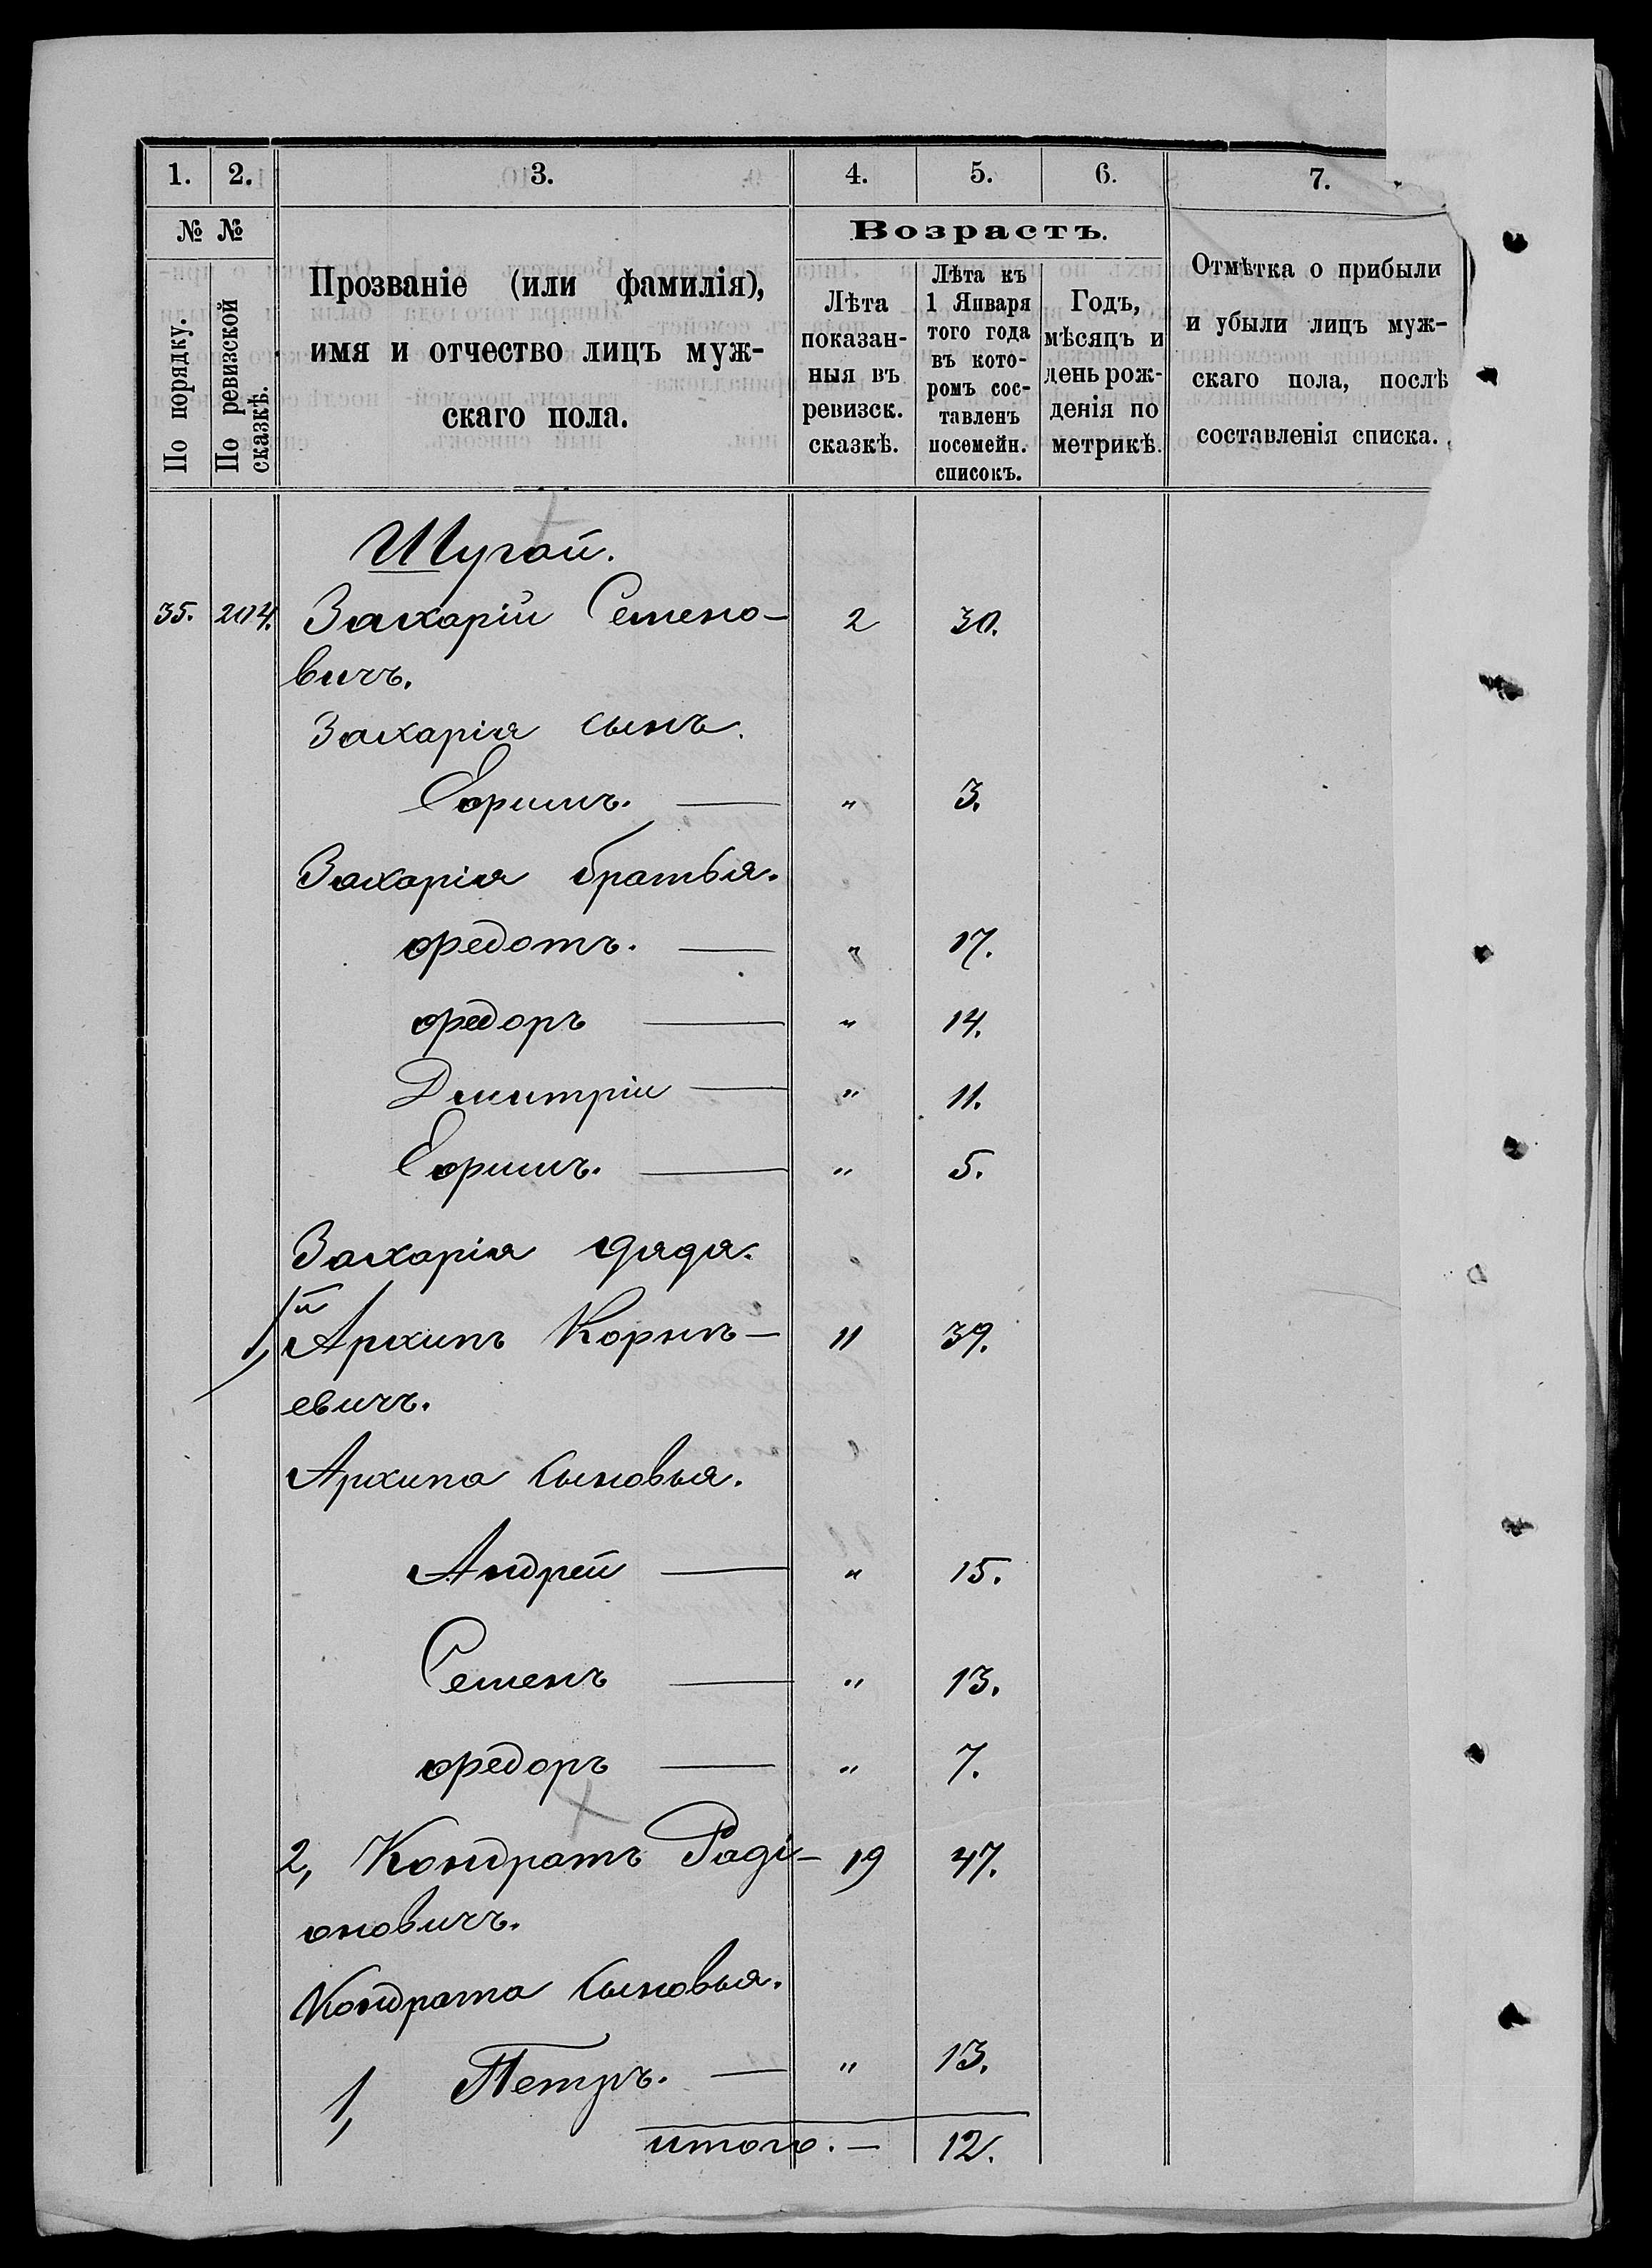 1. 2. 3. 4. 5. 6. 7.
№ №
По порядку.
По ревизской
сказкѣ.
Прозваніе (или фамилія),
имя и отчество лицъ муж-
скаго пола.
Возрастъ.
Лѣта
показан-
ныя въ
ревизск.
сказкѣ.
Лѣта къ
1 Января
того года
въ кото-
ромъ сос-
тавленъ
посемейн.
списокъ.
Годъ,
мѣсяцъ и
день рож-
денія по
метрикѣ.
Отмѣтка о прибыли
и убыли лицъ муж-
скаго пола, послѣ
составленія списка.
Шугай.
35. 204. Захарій Семено- 2 30.
вичъ.
Захарія сынъ.
Ефимъ. — " 3.
Захарія братья.
Федотъ. — " 17.
Федоръ — " 14.
Дмитрій — " 11.
Ефимъ. — " 5.
Захарія дядя.
1й
1, Архипъ Корнѣ- 11 39.
евичъ.
Архипа сыновья.
Андрей — " 15.
Семенъ — " 13.
Федоръ — " 7.
2, Кондратъ Раді- 19 47.
оновичъ.
Кондрата сыновья.
1, Петръ. — " 13.
итого. — 12.